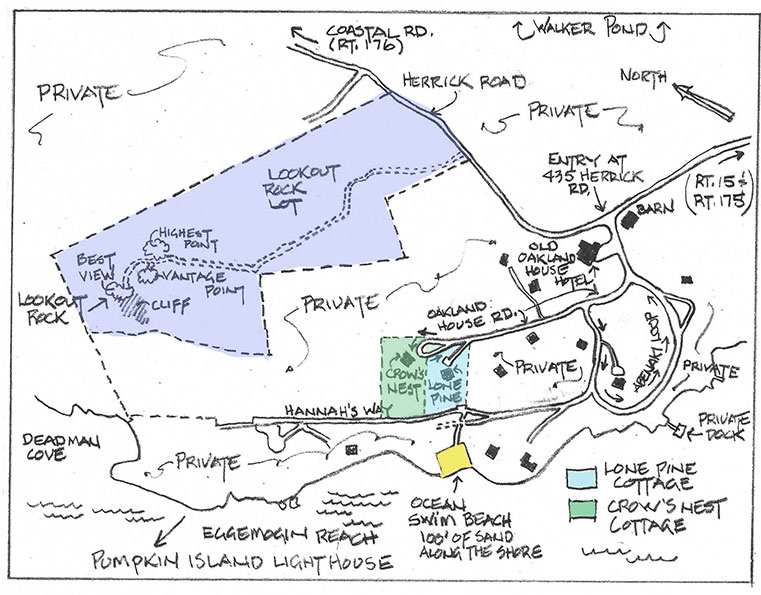 COASTAL RD.
(RT. 176)
WALKER POND
PRIVATE
HERRICK ROAD
NORTH
PRIVATE
ENTRY AT
435 HERRICK
RD.
(RT. 15 &
RT. 175)
BARN
LOOKOUT
ROCK
LOT
HIGHEST
POINT
BEST
VIEW
VANTAGE
POINT
LOOKOUT
ROCK
CLIFF
OLD
OAKLAND
HOUSE
HOTEL
PRIVATE
OAKLAND
HOUSE RD.
CROW'S
NEST
LONE
PINE
PRIVATE
ABENAKI LOOP
PRIVATE
HANNAH'S WAY
PRIVATE
DOCK
DEADMAN
COVE
PRIVATE
LONE PINE
COTTAGE
CROW'S NEST
COTTAGE
OCEAN
SWIM BEACH
100' OF SAND
ALONG THE SHORE
EGGEMOGIN REACH
PUMPKIN ISLAND LIGHTHOUSE